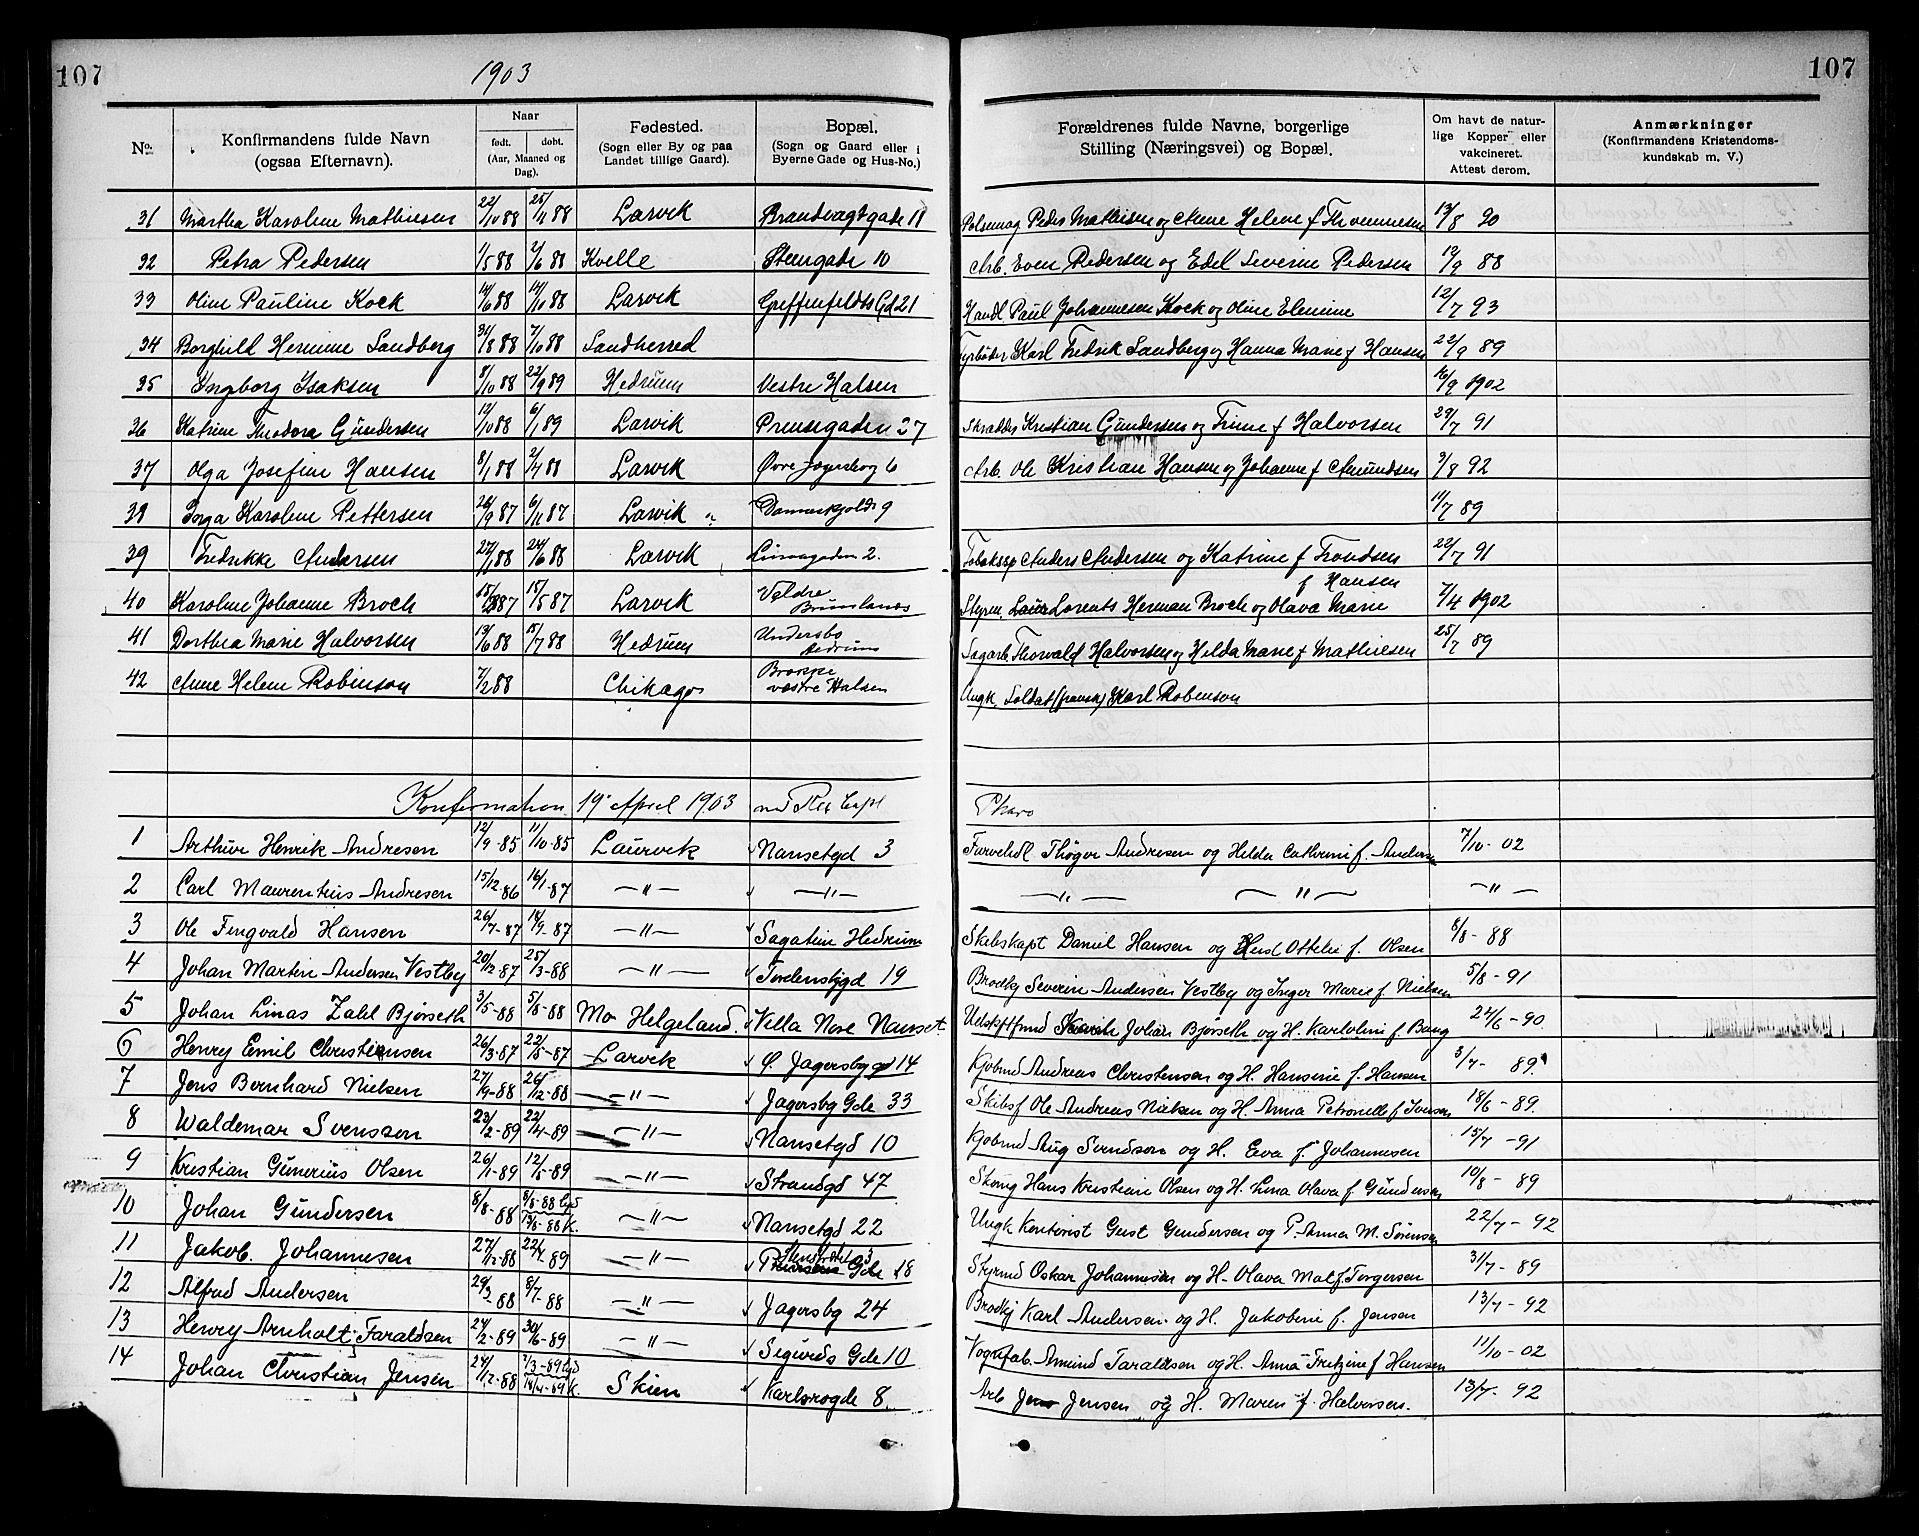 107
1903
107
No. Konfirmandens fulde Navn (ogsaa Efternavn). Naar født. døbt. (Aar, Maaned og Dag). Fødested. (Sogn eller By og paa Landet tillige Gaard). Bopæl. (Sogn og Gaard eller i Byerne Gade og Hus-No.) Forældrenes fulde Navne, borgerlige Stilling (Næringsvei) og Bopæl. Om havt de naturlige Kopper eller vakcineret. Attest derom. Anmærkninger (Konfirmandens Kristendomskundskab m. V.)
31 Martha Karoline Mathiesen 22/10 88 25/11 88 Larvik Brandvagtgade 11 Peder Mathisen og Anne Helene f 13/8 90
32 Petra Pedersen 1/5 88 2/6 88 Kvelle Steengade 10 Arb. Even Pedersen og Edel Severine Pedersen 19/9 88
33 Oline Pauline Kock 14/6 88 14/10 88 Larvik Greffenfeldts Gd 21 Handl Paul Johannesen Kock og Oline Elenine 12/7 93
34 Borghild Hermine Sandberg 31/8 88 7/10 88 Sandherred Fyrbøder Karl Fredrik Sandberg og Hanna Marie f Hansen 22/9 89
35 Ingborg Isaksen 8/10 88 22/9 89 Hedrum Vestre Halsen 16/9 1902
36 Katrine Theodora Gundersen 12/10 88 6/1 89 Larvik Prinsegaden 27 Skrædder Kristian Gundersen og Trine f Halvorsen 29/7 91
37 Olga Josefine Hansen 8/1 88 2/4 88 Larvik Øvre Jegersborg 6 Arb. Ole Kristian Hansen og Johanne f Amundsen 9/8 92
38 Inga Karoline Pettersen 26/9 87 6/11 87 Larvik Danneskjolds 9 11/7 89
39 Fredrikke Andersen 27/1 88 24/6 88 Larvik 2. Anders Andersen og Katrine f Trondsen 22/7 91
40 Karoline Johanne Broch 87 15/5 87 Larvik Veldre Brunlanes Styrm. Lorents Herman Broch og Olava Marie f Hansen 7/4 1902
41 Dorthea Marie Halvorsen 13/6 88 15/7 88 Hedrum Undersbo Hedrum Sagarb. Thorvald Halvorsen og Hilda Marie f Mathiesen 25/7 89
42 Anne Helene Robinson 7/2 88 Chikago Brokke vestre Halsen Ungk. Soldat (fransk) Karl Robenson
Konfirmation 19de April 1903
1 Arthur Henrik Andresen 12/9-85 11/10-85 Laurvik Nansetgd 3 Farvehdl Thøger Andresen og Hilda Cathrine f. Andersen 7/10-02
2 Carl Maurentius Andresen 15/12-86 16/1-87 —"— —"— —"— —"— —"—
3 Ole Fingvald Hansen 26/7-87 18/9-87 —"— Sagatun Hedrum Skibskapt Daniel Hansen og Ottelie f. Olsen 8/8-88
4 Johan Martin Andersen Vestby 20/12-87 25/3-88 —"— Tordenskjgd 19 Brødkj Severin Andersen Vestby og Inger Marie f. Nielsen 5/8-91
5 Johan Linas Zahl Bjørseth 3/5-88 5/8-88 Mo Helgeland. Villa Nore Nanset Johan Bjørseth og H. Karoline f. Bang 24/6-90.
6 Henry Emil Christensen 26/3-87 22/5-87 Larvik Ø. Jagersbg 14 Kjøbmd Andreas Christensen og H. Hansine f. Hansen 3/7-89
7 Jens Bernhard Nielsen 27/9-88 26/12-88 —"— Jagersbg Gde 33 Skibsf Ole Andreas Nielsen og H. Anna Petronelle f. Iversen 18/6-89.
8 Waldemar Svensson 23/2-89 22/4-89 —"— Nansetgd 10 Kjøbmd Aug Svendson og H. Eva f. Johannesen 15/7-91
9 Kristian Gunerius Olsen 26/1-89 12/5-89 —"— Strandgd 47 Skomg Hans Kristian Olsen og H. Lina Olava f Gundersen 10/8-89
10 Johan Gundersen 8/8-88 8/8-88 13/8-88 K. —"— Nansetgd 22 Ungk Kontorist Gust Gundersen og P. Anna M. Sørensen 22/7-92
11 Jakob Johannesen 27/12-88 22/4 89 —"— 3 Gde 18 Styrmd Oskar Johannesen og H. Olava Mal f. Torgersen 31/7-89
12 Alfred Andersen 29/3-88 8/7-88 —"— Jagersbg 24 Brødkj Karl Andersen og H. Jakobine f. Jensen 13/7-92
13 Henry Arnholt Taraldsen 24/2-89 30/6-89 —"— Sigurds Gde 10 Vognfab. Amund Taraldsen og H. Anna Fretzine f Hansen 11/10-02
14 Johan Christian Jensen 24/12-88 1/3-89 14/4-89 K. Skien Karlsrogde 8. Arb Jens Jensen og H. Maren f. Halvorsen. 13/7-92